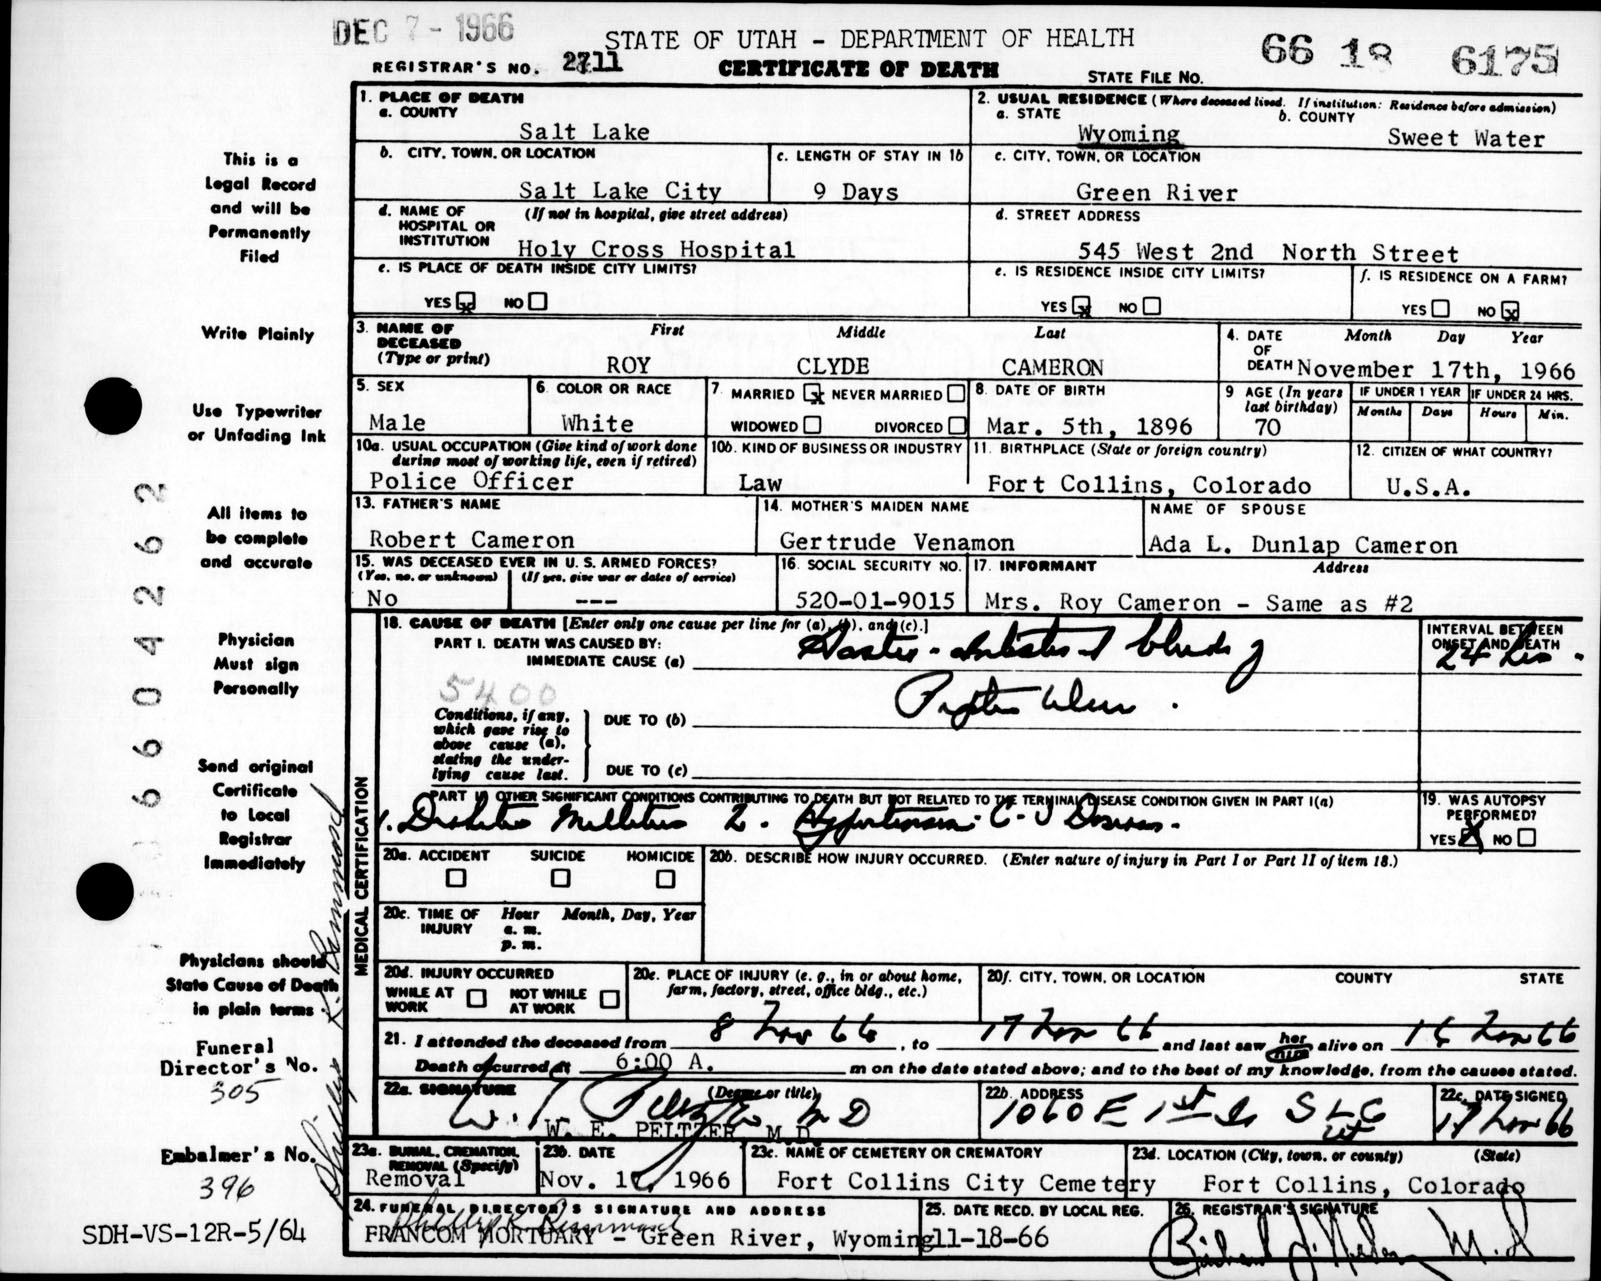 DEC 7 - 1966
STATE OF UTAH - DEPARTMENT OF HEALTH
66 18 6175
REGISTRAR'S NO. 2711
CERTIFICATE OF DEATH
STATE FILE NO.
1. PLACE OF DEATH
a. COUNTY
Salt Lake
2. USUAL RESIDENCE (Where deceased lived. If institution: Residence before admission)
a. STATE b. COUNTY
Wyoming Sweet Water
b. CITY, TOWN, OR LOCATION
Salt Lake City
c. LENGTH OF STAY IN 1b
9 Days
c. CITY, TOWN, OR LOCATION
Green River
d. NAME OF HOSPITAL OR INSTITUTION (If not in hospital, give street address)
Holy Cross Hospital
d. STREET ADDRESS
545 West 2nd North Street
e. IS PLACE OF DEATH INSIDE CITY LIMITS?
YES x NO
e. IS RESIDENCE INSIDE CITY LIMITS?
YES x NO
f. IS RESIDENCE ON A FARM?
YES NO x
3. NAME OF DECEASED (Type or print)
First Middle Last
ROY CLYDE CAMERON
4. DATE OF DEATH
Month Day Year
November 17th, 1966
5. SEX
Male
6. COLOR OR RACE
White
7. MARRIED x NEVER MARRIED
WIDOWED DIVORCED
8. DATE OF BIRTH
Mar. 5th, 1896
9 AGE (In years last birthday)
70
IF UNDER 1 YEAR
Months Days
IF UNDER 24 HRS.
Hours Min.
10a. USUAL OCCUPATION (Give kind of work done during most of working life, even if retired)
Police Officer
10b. KIND OF BUSINESS OR INDUSTRY
Law
11. BIRTHPLACE (State or foreign country)
Fort Collins, Colorado
12. CITIZEN OF WHAT COUNTRY?
U.S.A.
13. FATHER'S NAME
Robert Cameron
14. MOTHER'S MAIDEN NAME
Gertrude Venamon
NAME OF SPOUSE
Ada L. Dunlap Cameron
15. WAS DECEASED EVER IN U. S. ARMED FORCES?
(Yes, no, or unknown) (If yes, give war or dates of service)
No ---
16. SOCIAL SECURITY NO.
520-01-9015
17. INFORMANT Address
Mrs. Roy Cameron - Same as #2
18. CAUSE OF DEATH [Enter only one cause per line for (a), (b), and (c).]
PART I. DEATH WAS CAUSED BY:
IMMEDIATE CAUSE (a) Gastro-intestinal bleeding
INTERVAL BETWEEN ONSET AND DEATH
24 hrs.
5400
Conditions, if any, which gave rise to above cause (a), stating the underlying cause last.
DUE TO (b) Peptic Ulcer.
DUE TO (c)
PART II. OTHER SIGNIFICANT CONDITIONS CONTRIBUTING TO DEATH BUT NOT RELATED TO THE TERMINAL DISEASE CONDITION GIVEN IN PART I(a)
1. Diabetes Mellitus 2. Hypertensive C-V Disease.
19. WAS AUTOPSY PERFORMED?
YES X NO
20a. ACCIDENT SUICIDE HOMICIDE
20b. DESCRIBE HOW INJURY OCCURRED. (Enter nature of injury in Part I or Part II of item 18.)
20c. TIME OF INJURY
Hour Month, Day, Year
a. m.
p. m.
20d. INJURY OCCURRED
WHILE AT WORK NOT WHILE AT WORK
20e. PLACE OF INJURY (e. g., in or about home, farm, factory, street, office bldg., etc.)
20f. CITY, TOWN, OR LOCATION COUNTY STATE
21. I attended the deceased from 8 Nov 66, to 17 Nov 66 and last saw her him alive on 16 Nov 66
Death occurred at 6:00 A. m on the date stated above; and to the best of my knowledge, from the causes stated.
22a. SIGNATURE (Degree or title)
W. E. Peltzer MD
W. E. PELTZER M.D.
22b. ADDRESS
1060 E 1st So SLC Ut
22c. DATE SIGNED
17 Nov 66
23a. BURIAL, CREMATION, REMOVAL (Specify)
Removal
23b. DATE
Nov. 17, 1966
23c. NAME OF CEMETERY OR CREMATORY
Fort Collins City Cemetery
23d. LOCATION (City, town, or county) (State)
Fort Collins, Colorado
24. FUNERAL DIRECTOR'S SIGNATURE AND ADDRESS
Phillip K. Rimmasch
FRANCOM MORTUARY - Green River, Wyoming
25. DATE RECD. BY LOCAL REG.
11-18-66
26. REGISTRAR'S SIGNATURE
M.D.
MEDICAL CERTIFICATION
This is a
Legal Record
and will be
Permanently
Filed
Write Plainly
Use Typewriter
or Unfading Ink
All items to
be complete
and accurate
Physician
Must sign
Personally
Send original
Certificate
to Local
Registrar
Immediately
Physicians should
State Cause of Death
in plain terms.
Funeral
Director's No.
305
Embalmer's No.
396
SDH-VS-12R-5/64